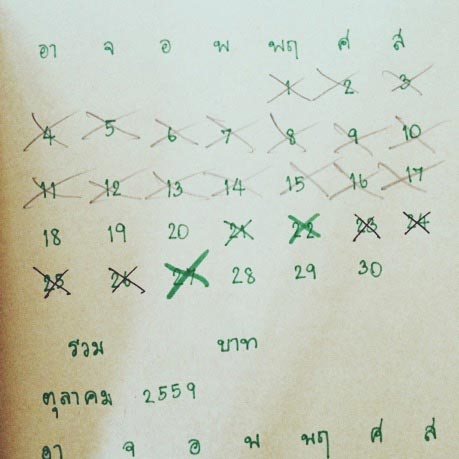 อา จ อ พ พฤ ศ ส
1 2 3
4 5 6 7 8 9 10
11 12 13 14 15 16 17
18 19 20 21 22 23 24
25 26 27 28 29 30
รวม บาท
ตุลาคม 2559
อา จ อ พ พฤ ศ ส